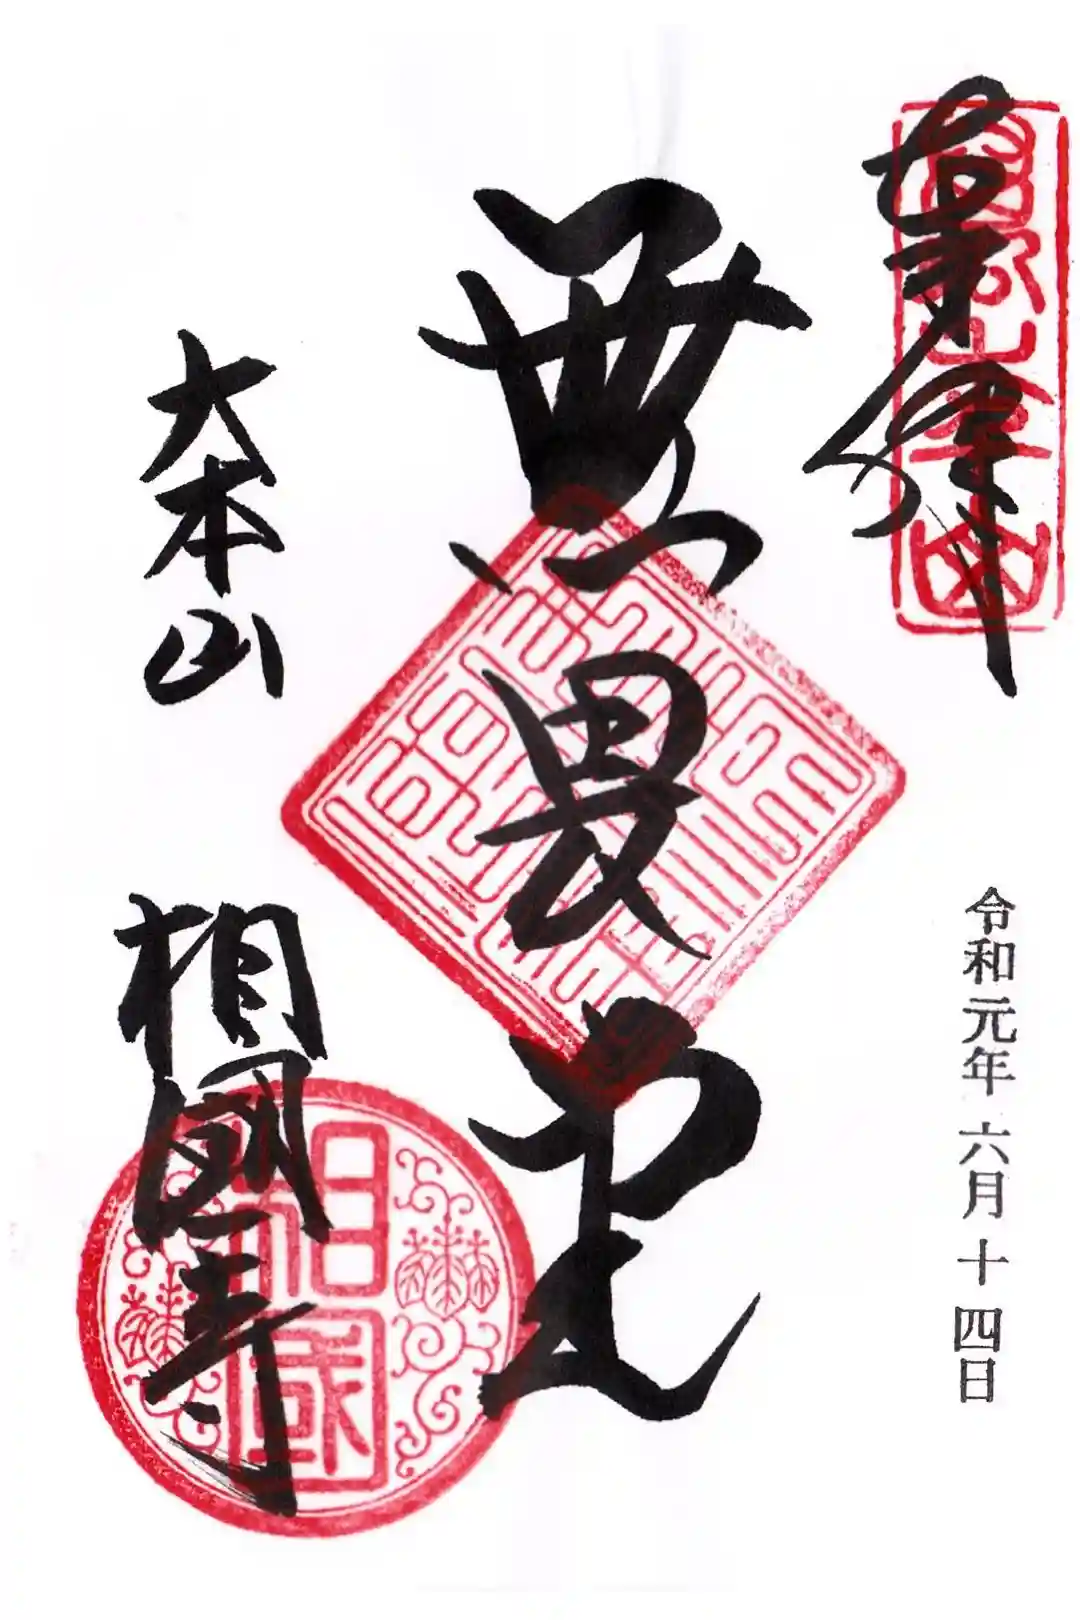 奉拝
令和元年 六月 十四日
無畏堂
大本山
相國寺